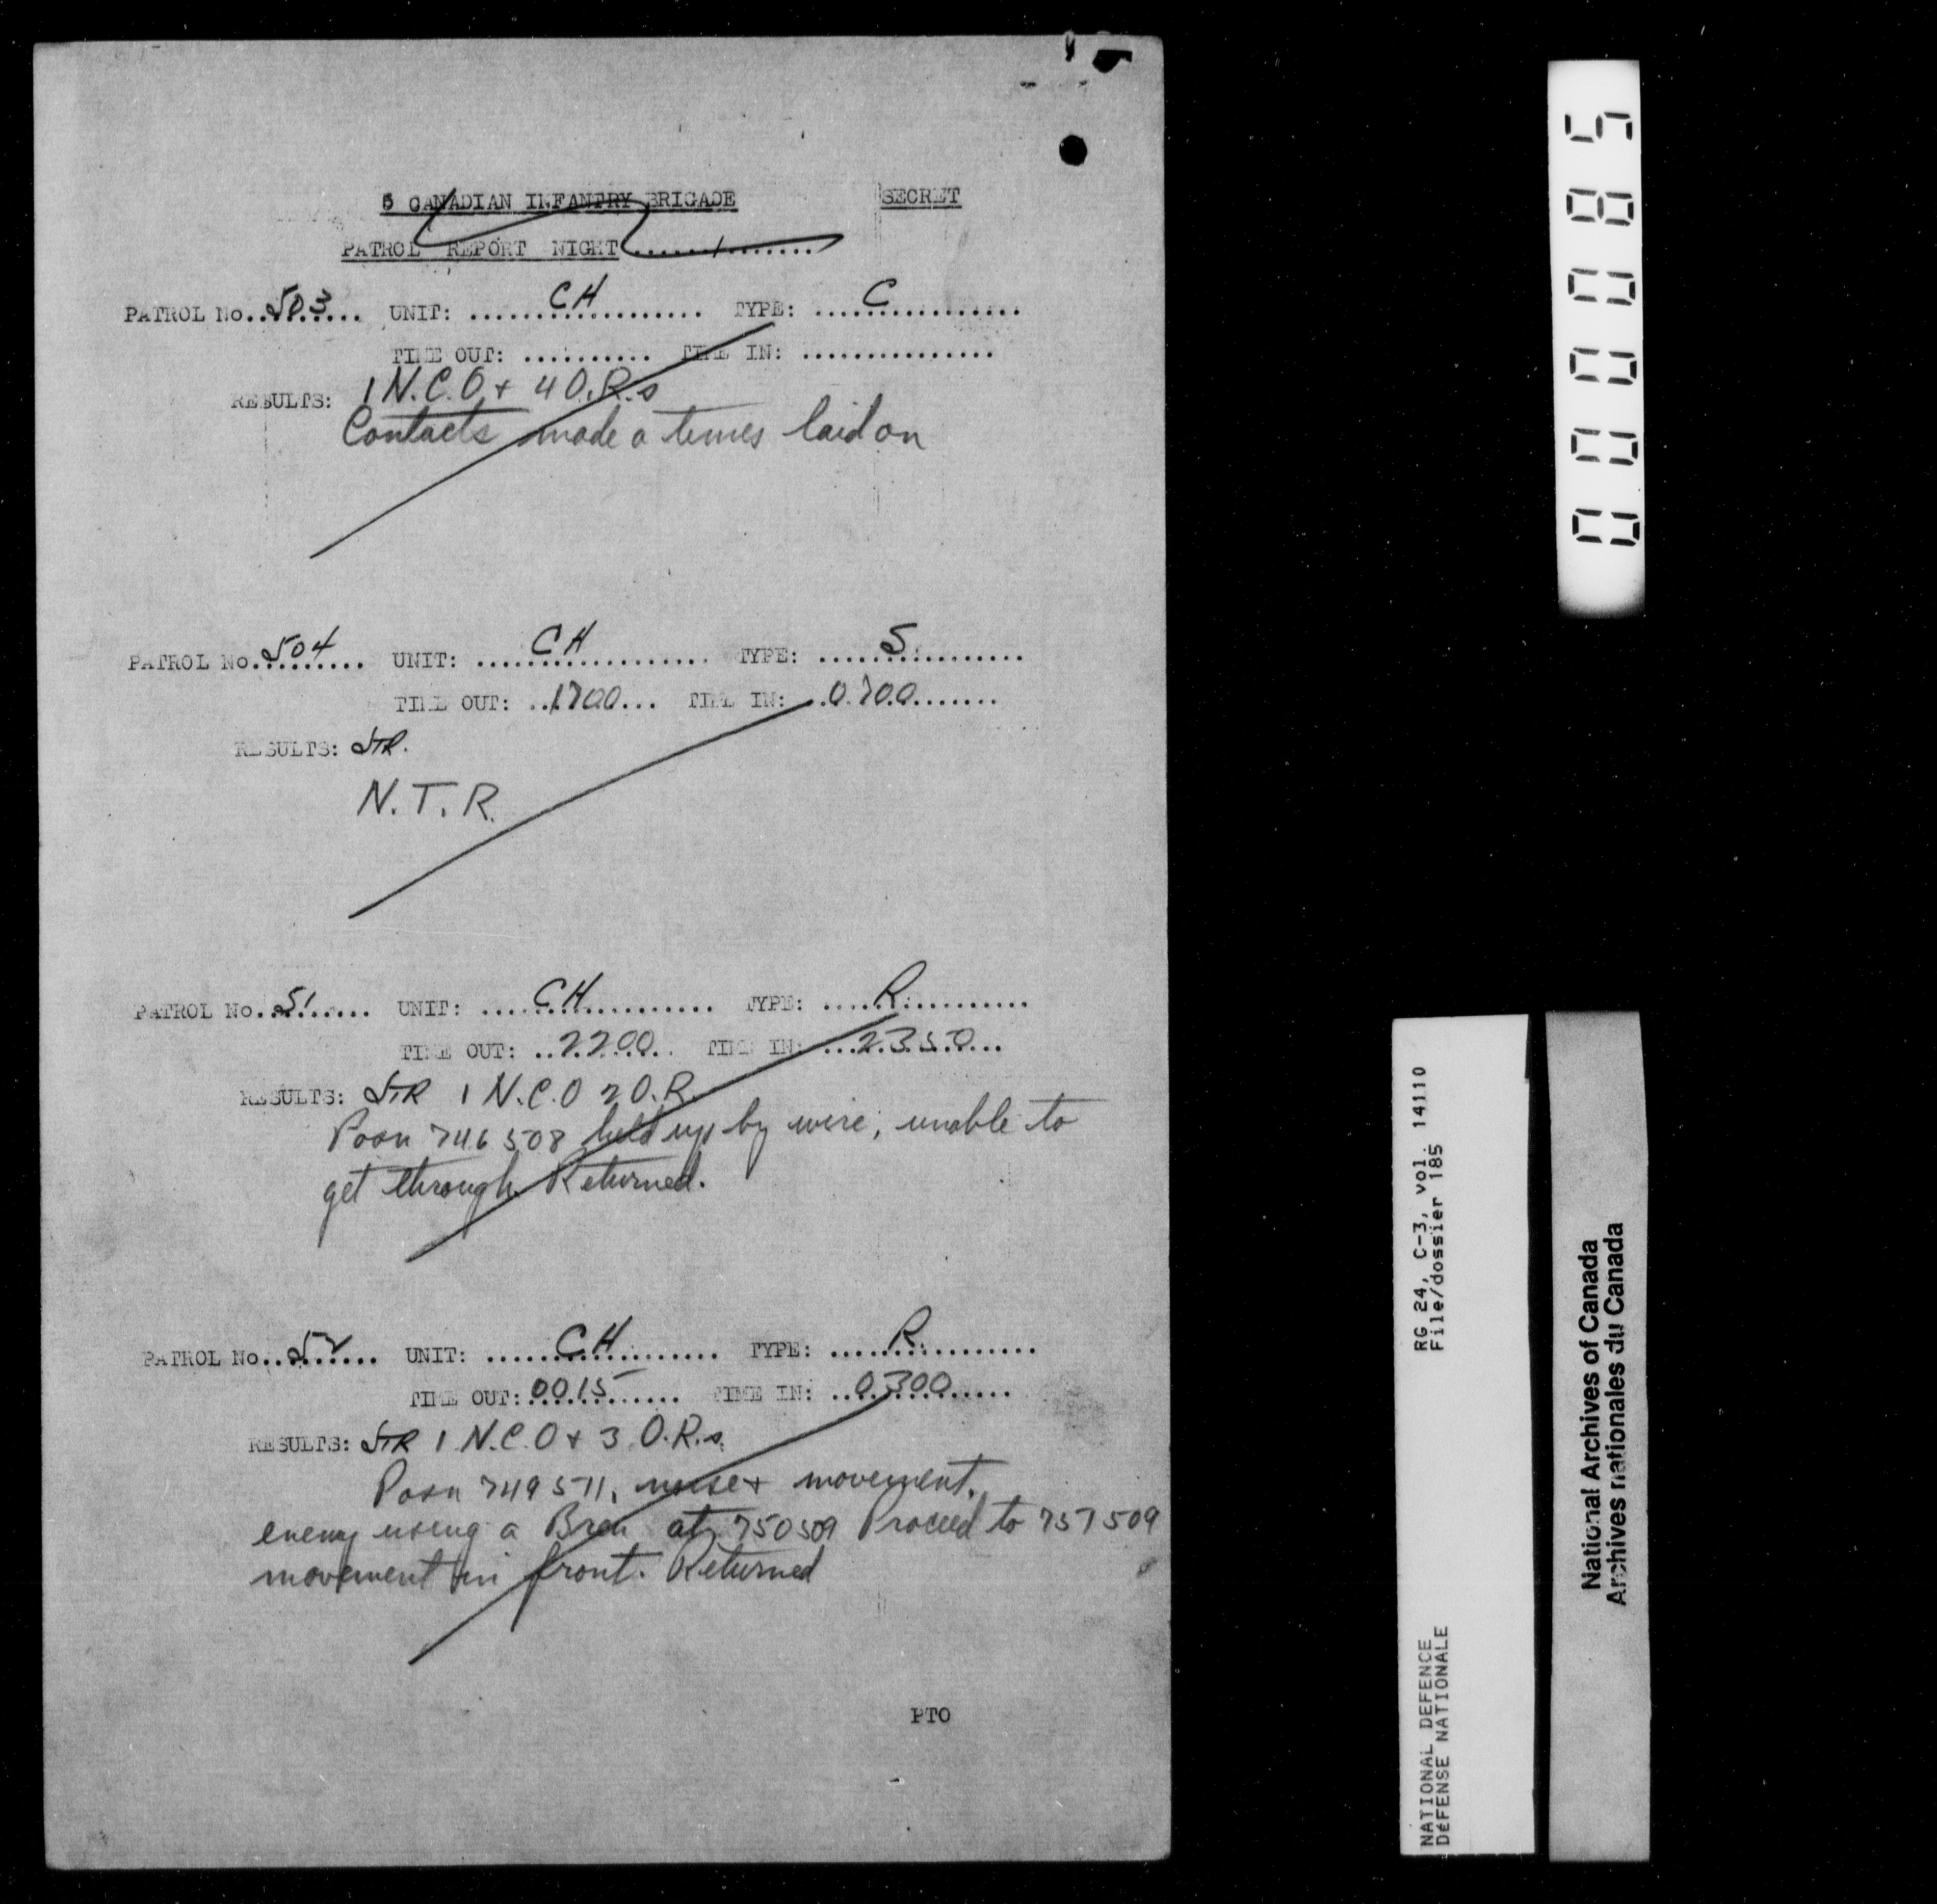 5 CANADIAN INFANTRY BRIGADE SECRET
PATROL REPORT NIGHT..................
PATROL No. 503 UNIT: CH TYPE: C
TIME OUT: .......... TIME IN: ...............
RESULTS: 1 N.C.O + 4 O.R.s
Contacts made a times laid on
PATROL No. 504 UNIT: CH TYPE: S
TIME OUT: 1700 TIME IN: 0700
RESULTS: STR.
N.T.R.
PATROL No. 51 UNIT: CH TYPE: R
TIME OUT: 2200 TIME IN: 2350
RESULTS: STR 1 N.C.O 2 O.R.
Posn 746508 held up by wire, unable to
get through. Returned.
PATROL No. 52 UNIT: CH TYPE: R
TIME OUT: 0015 TIME IN: 0300
RESULTS: STR 1 N.C.O + 3 O.R.s
Posn 749511, noise + movement.
enemy using a Bren at 750509 Proceed to 757509
movement in front. Returned
PTO
000085
RG 24, C-3, vol. 14110
File/dossier 185
NATIONAL DEFENCE
DÉFENSE NATIONALE
National Archives of Canada
Archives nationales du Canada